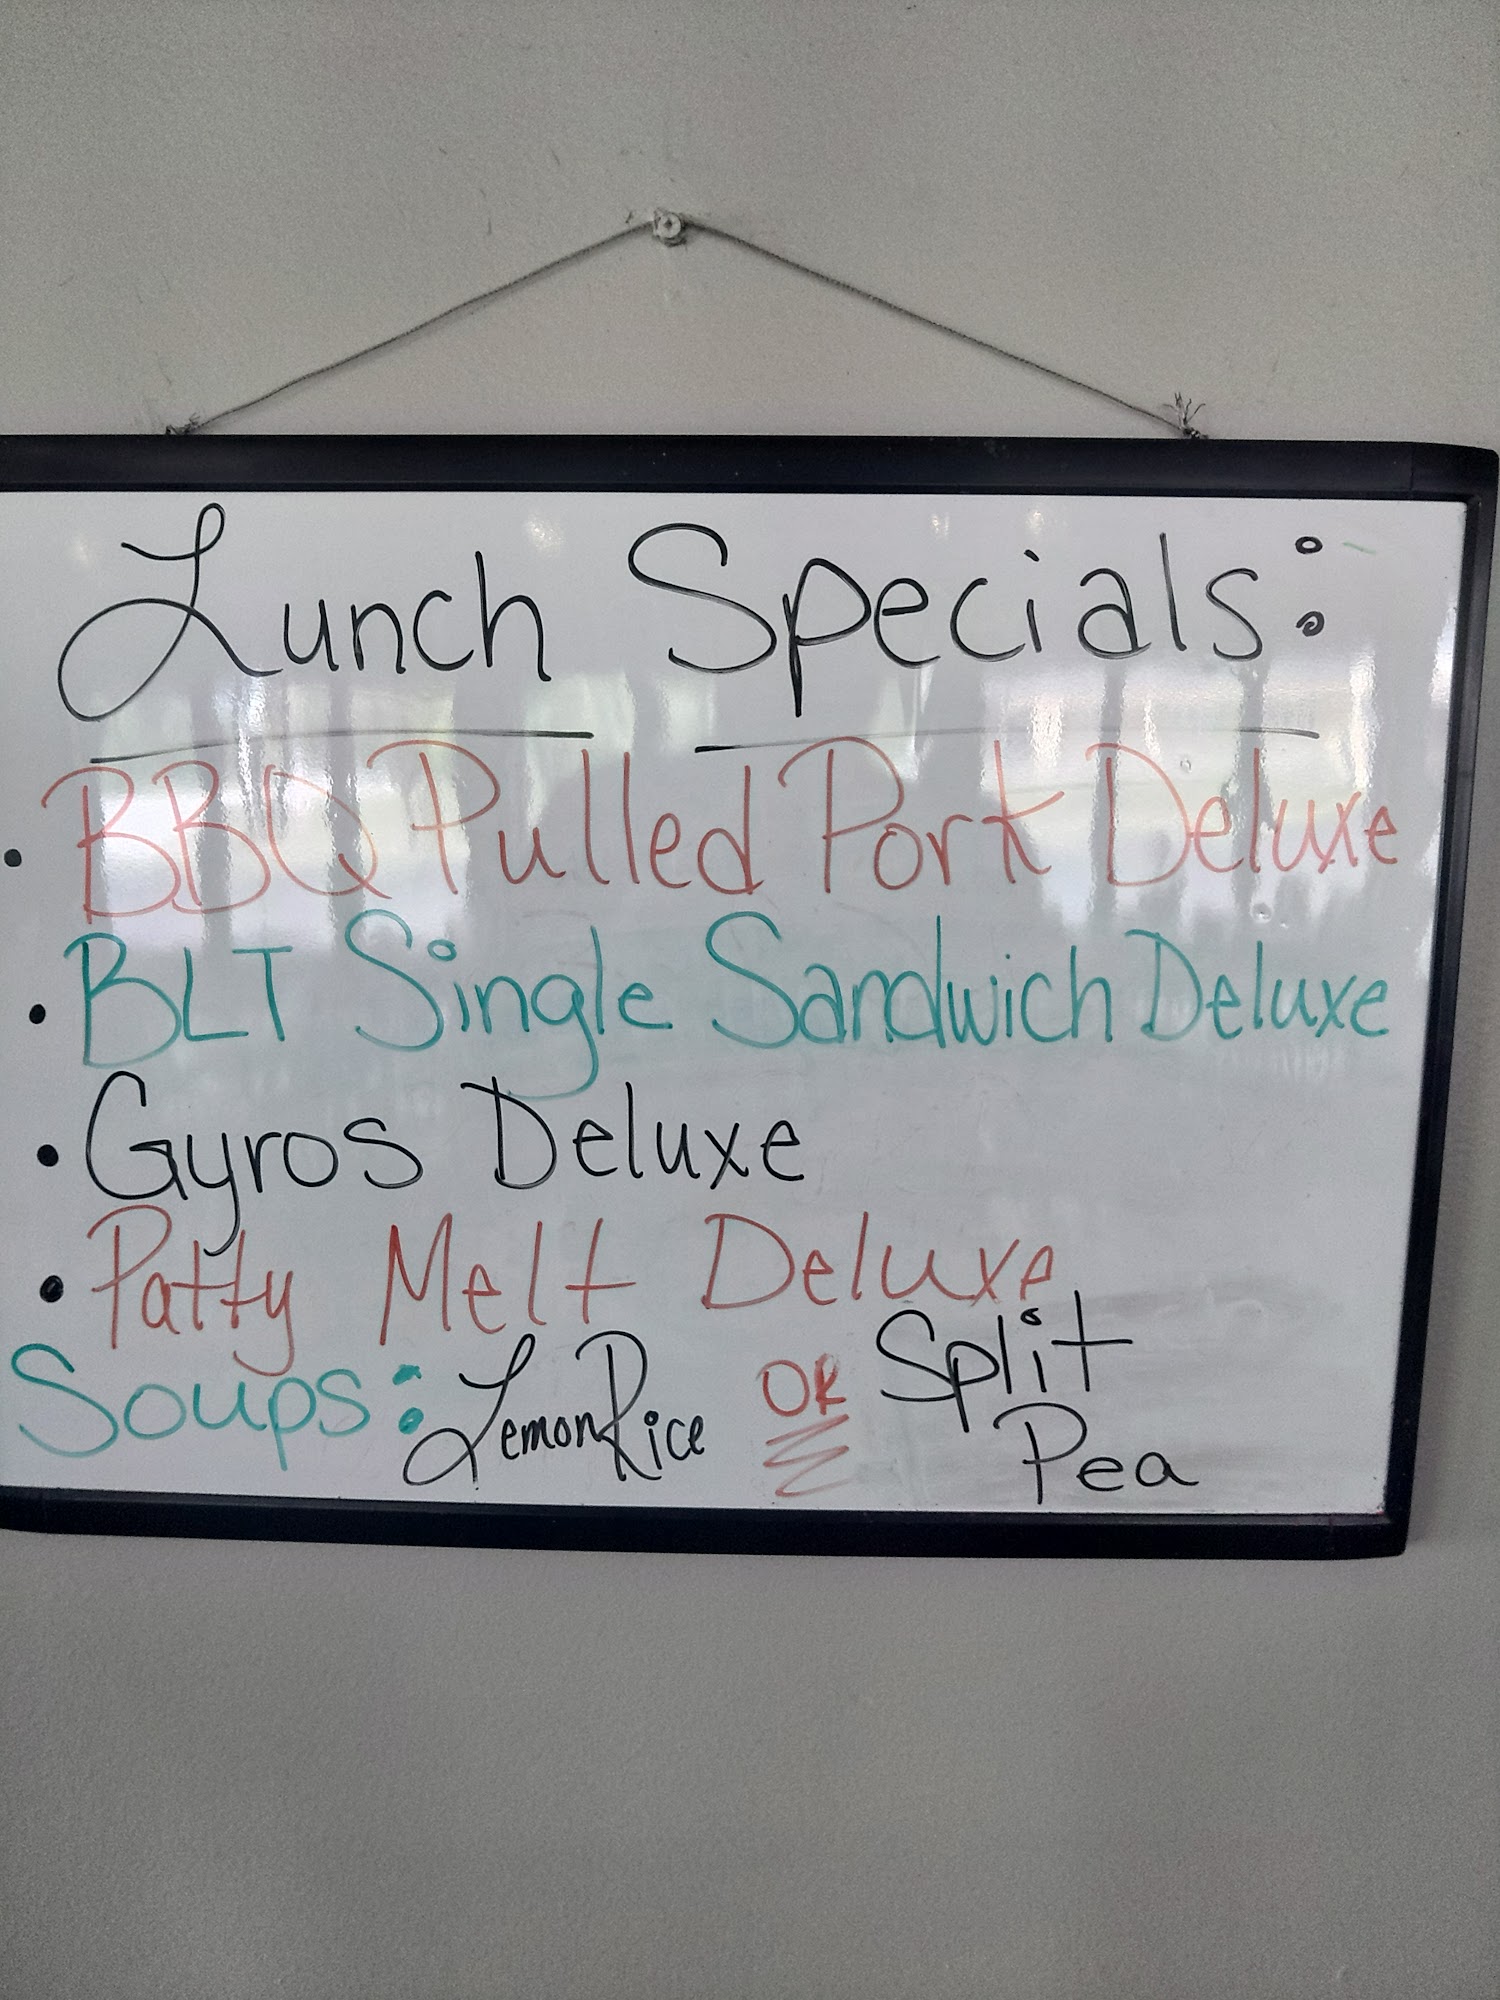 Lunch Specials:
• BBQ Pulled Pork Deluxe
• BLT Single Sandwich Deluxe
• Gyros Deluxe
• Patty Melt Deluxe
Soups: Lemon Rice OR Split
Pea